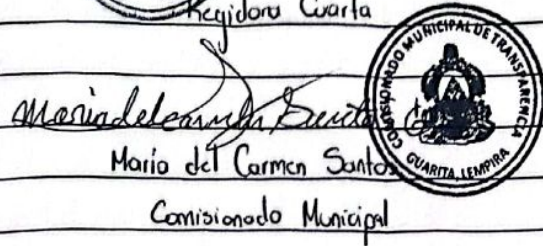 Regidora Cuarta
Maria del carmen Santos
COMISIONADO MUNICIPAL DE TRANSPARENCIA
GUARITA, LEMPIRA
Maria del Carmen Santos
Comisionado Municipal